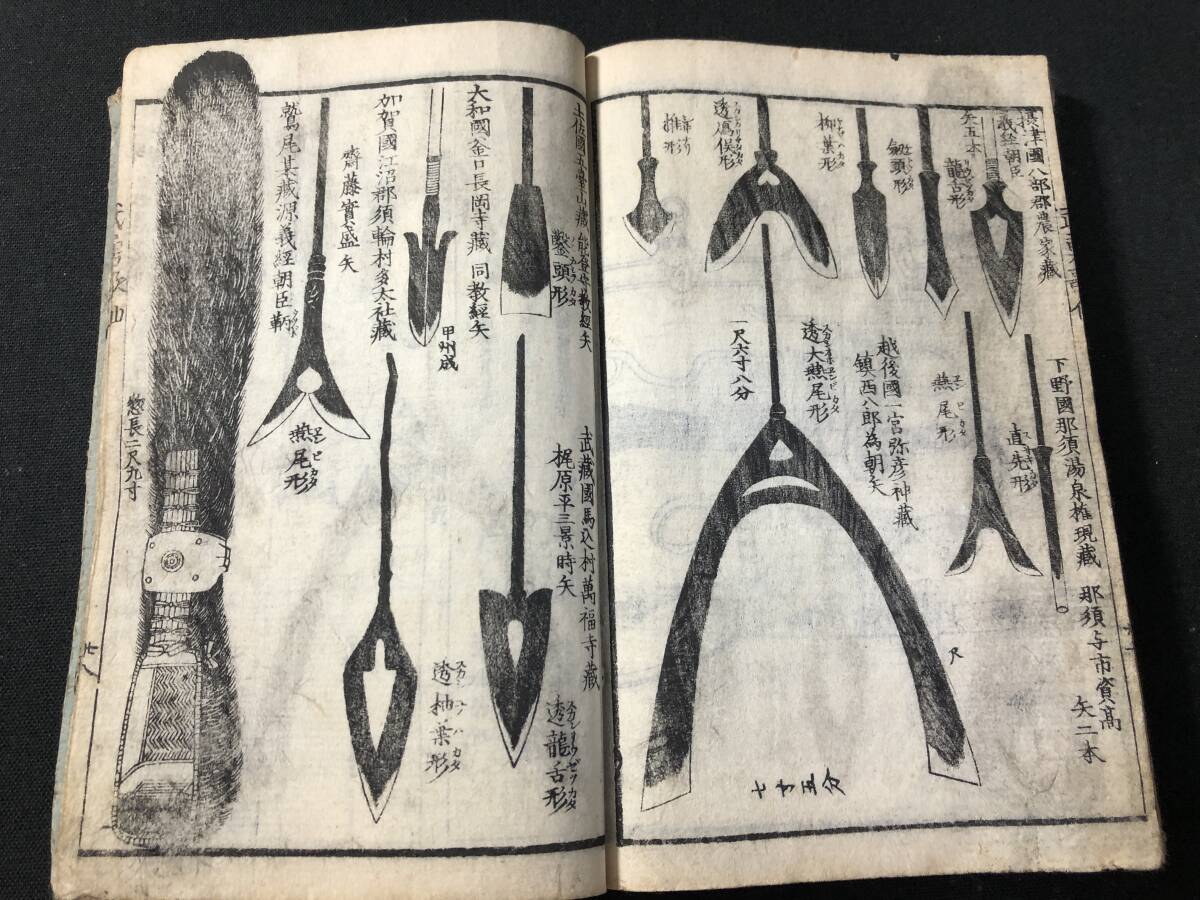 摂津國八部郡農家藏
義經朝臣
矢五本
龍舌形
釼頭形
柳葉形
透鴈俣形
椎形
下野國那須湯泉権現藏 那須与市資髙
矢二本
直先形
燕尾形
越後國一宮弥彦神藏
鎮西八郎為朝矢
透大燕尾形
一尺六寸八分
土佐國五臺山藏 能登守教經矢
鑿頭形
大和國釜口長岡寺藏 同教經矢
甲州成
加賀國江沼郡須輪村多太社藏
齋藤實盛矢
燕尾形
鷲尾某藏源義經朝臣靭
惣長二尺九寸
武藏國馬込村萬福寺藏
梶原平三景時矢
透龍舌形
透柚葉形